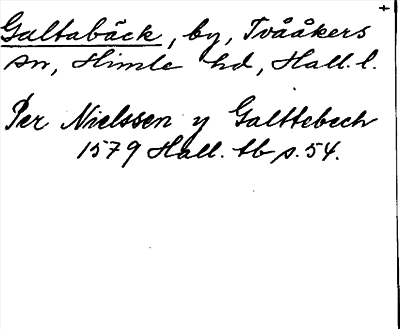 +
Galtabäck, by, Tvååkers
sn, Himle hd, Hall. l.
Per Nielssen y Galttebech
1579 Hall. tb s. 54.